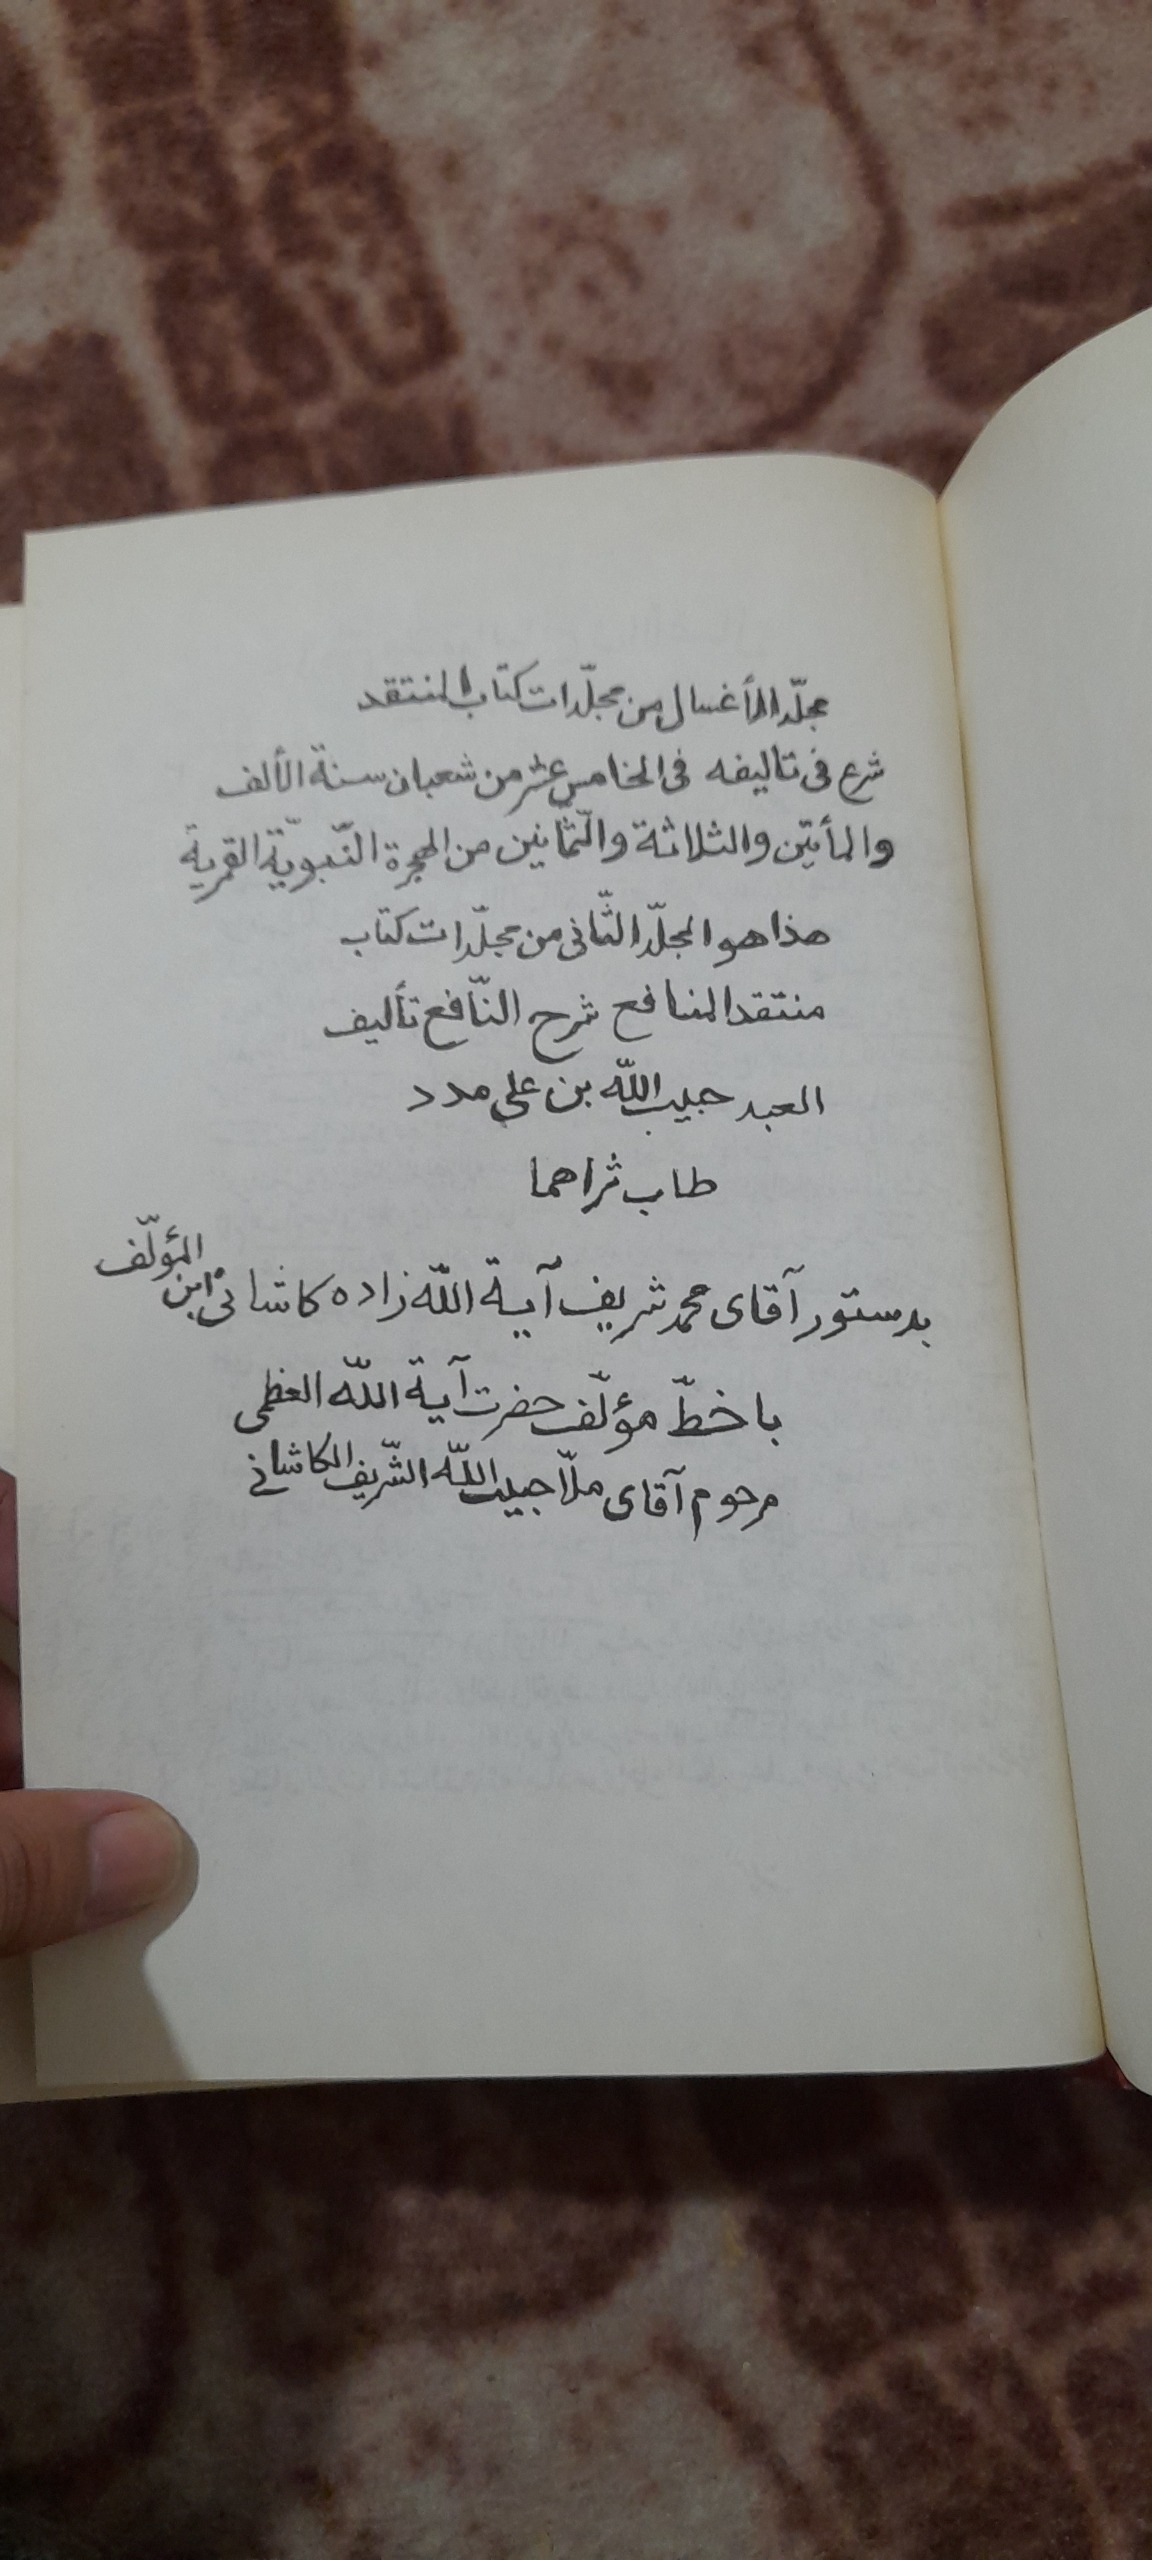 مجلّد الأغسال من مجلّدات كتاب المنتقد
شرع فی تالیفه فی الخامس عشر من شعبان سنة الألف
والمأتین والثلاثة والثّمانین من الهجرة النّبویّة القمریة
هذا هو المجلّد الثّانی من مجلّدات کتاب
منتقد المنافع شرح النّافع تألیف
العبد حبیب اللّه بن علی مدد
طاب ثراهما
بدستور آقای محمد شریف آیة اللّه زاده کاشانی ابن المؤلّف
با خطّ مؤلّف حضرت آیة اللّه العظمی
مرحوم آقای ملّا حبیب اللّه الشّریف الکاشانی